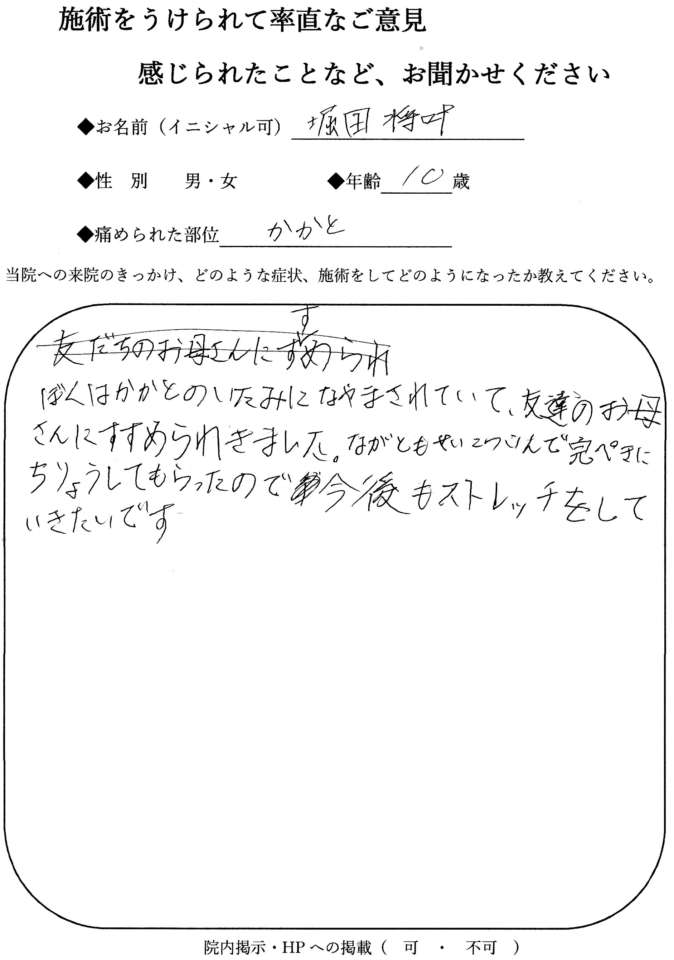 施術をうけられて率直なご意見
感じられたことなど、お聞かせください
◆お名前（イニシャル可） 堀田 将叶
◆性 別 男・女 ◆年齢 10 歳
◆痛められた部位 かかと
当院への来院のきっかけ、どのような症状、施術をしてどのようになったか教えてください。
す
友だちのお母さんにすめられ
ぼくはかかとのいたみになやまされていて、友達のお母
さんにすすめられきました。ながともせいこついんで完ぺきに
ちりょうしてもらったので今後もストレッチをして
いきたいです
院内掲示・HPへの掲載（ 可 ・ 不可 ）